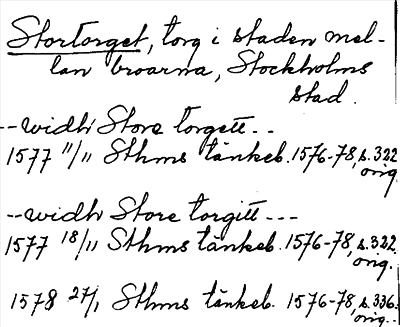 Stortorget, torg i staden mel-
lan broarna, Stockholms
stad.
--widh Store torgett--
1577 11/11 Sthms tänkeb. 1576-78, s. 322
orig.
--widh Store torgitt---
1577 18/11 Sthms tänkeb. 1576-78, s. 322.
orig.
1578 27/1 Sthms tänkeb. 1576-78, s. 336.
orig.